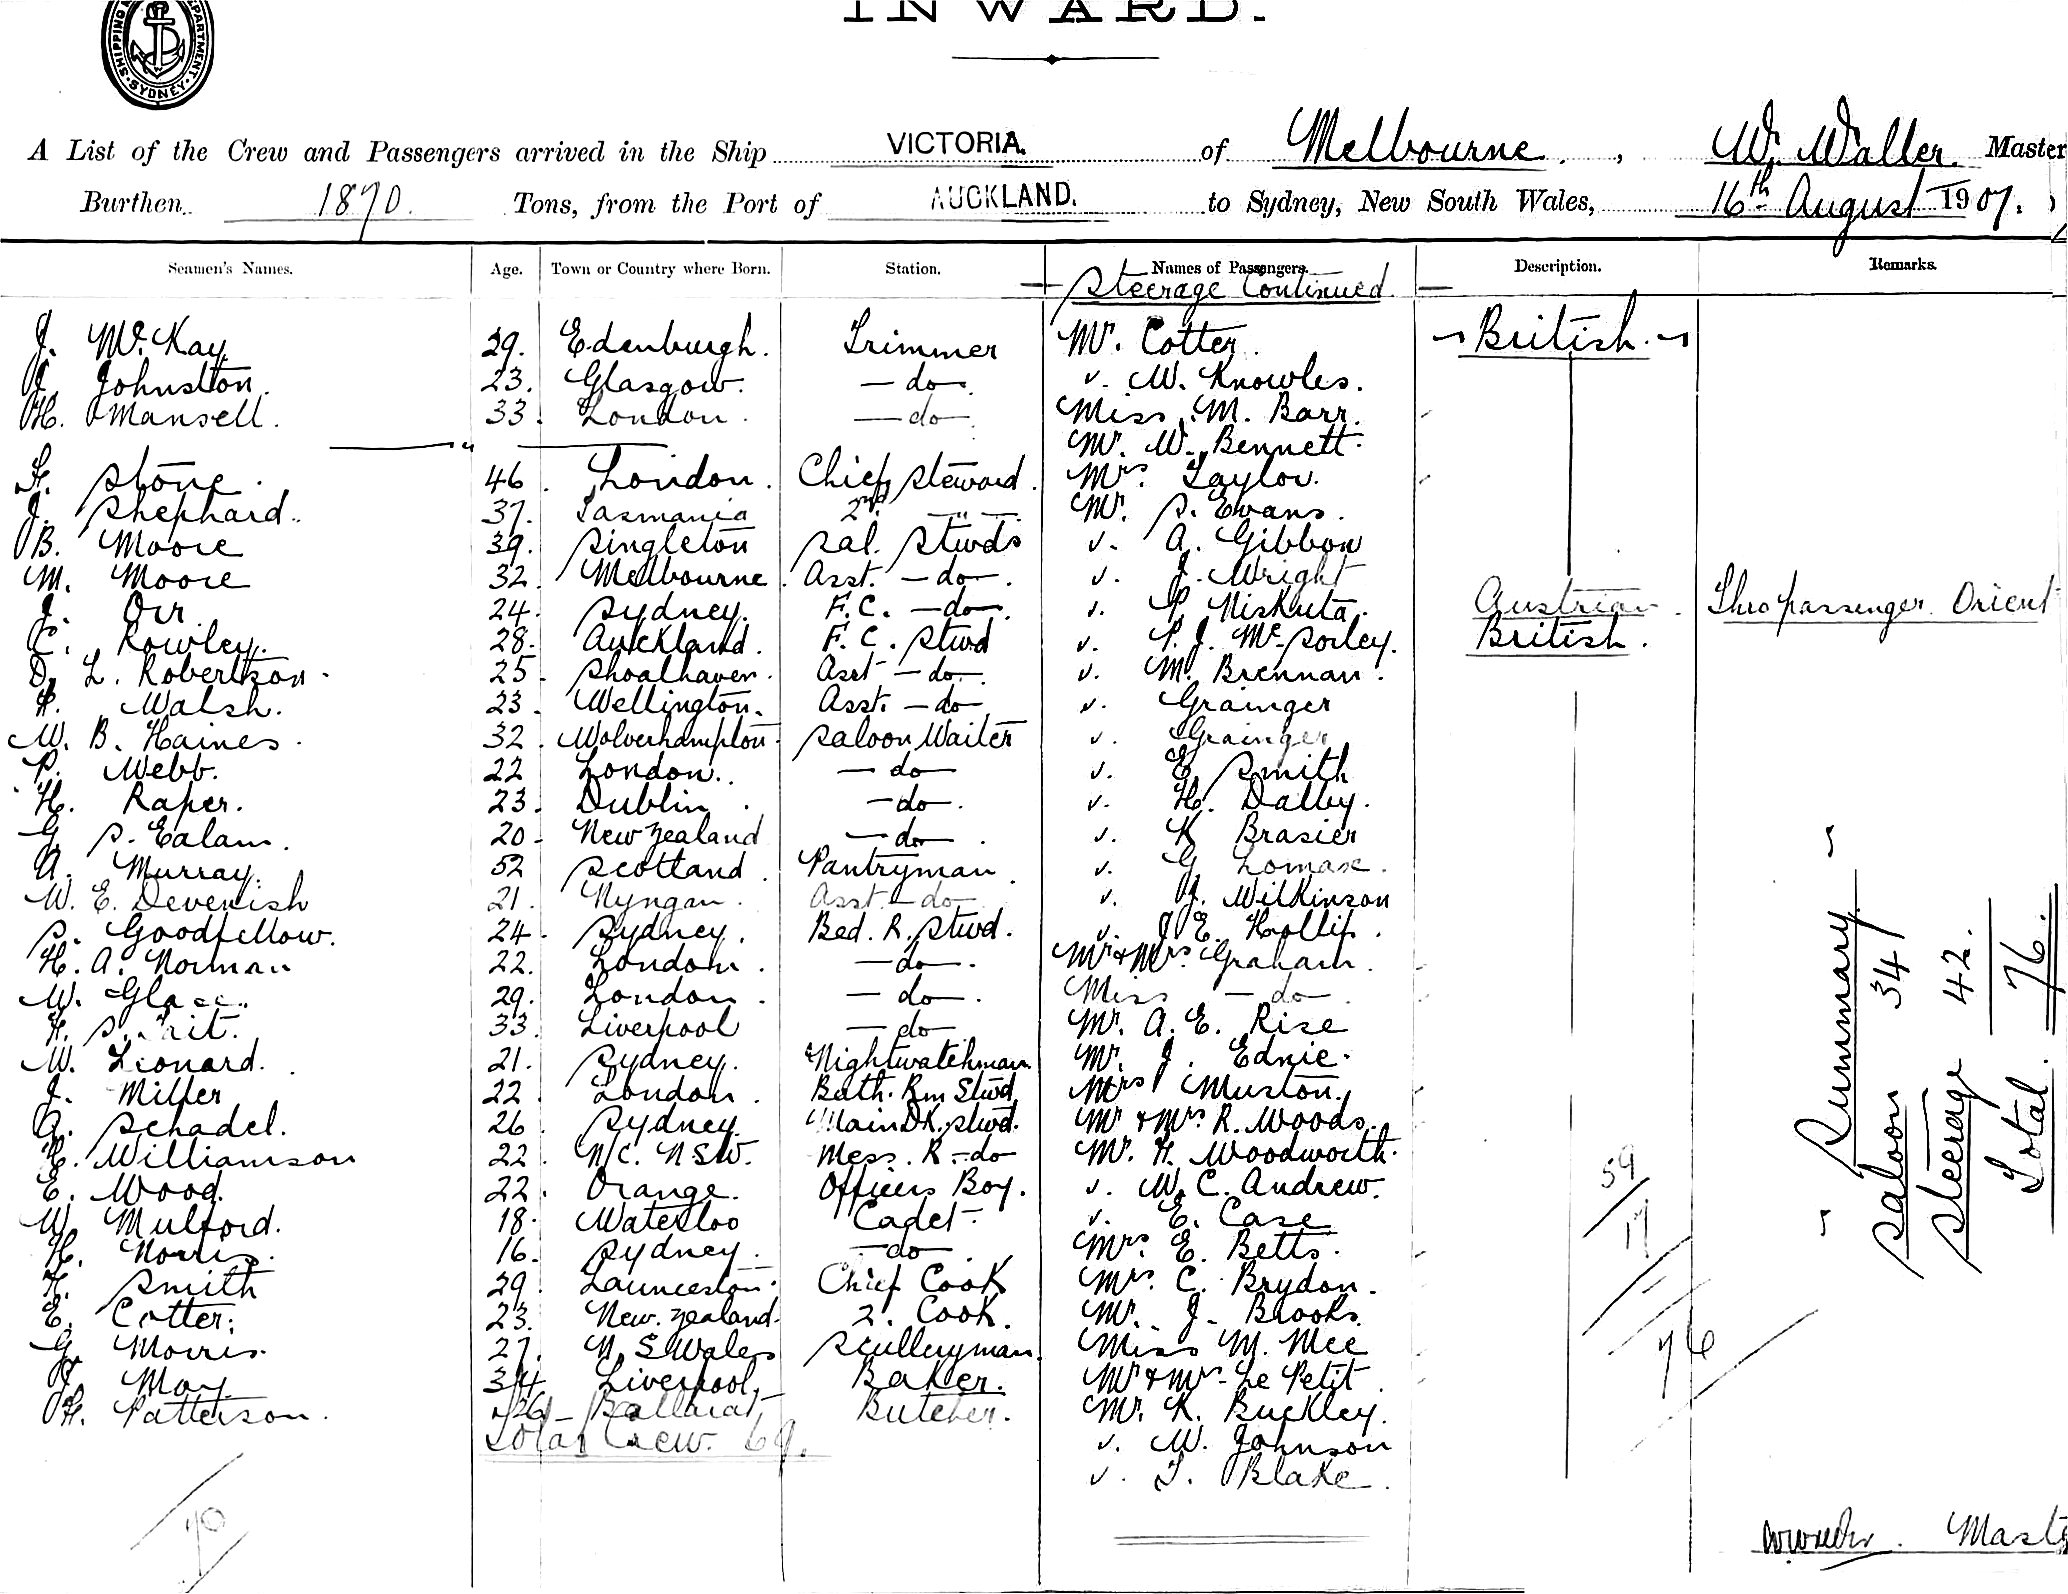 INWARD.
SHIPPING DEPARTMENT. SYDNEY
A List of the Crew and Passengers arrived in the Ship VICTORIA. of Melbourne, W. Waller. Master
Burthen 1870. Tons, from the Port of AUCKLAND. to Sydney, New South Wales, 16th August 1907.
Seamen's Names. Age. Town or Country where Born. Station. Names of Passengers. Description. Remarks.
Steerage Continued
J. McKay 29. Edenburgh. Trimmer Mr. Cotter. British.
J. Johnston. 23. Glasgow. — do — v. W. Knowles.
H. Mansell. 33. London. — do — Miss. M. Barr.
Mr. W. Bennett.
F. Stone. 46. London. Chief Steward. Mrs. Taylor.
J. Shephard. 37. Tasmania 2nd — " — Mr. S. Evans.
B. Moore 39. Singleton Sal. Stwds v. A. Gibbon
M. Moore 32. Melbourne. Asst. — do —. v. J. Wright
J. Orr. 24. Sydney. F.C. — do —. v. P. Niskuta. Austrian. Thro passenger Orient
C. Rowley. 28. Auckland. F.C. Stwd v. P. J. McSorley. British.
D. L. Robertson. 25. Shoalhaven. Asst — do —. v. M. Brennan.
F. Walsh. 23. Wellington. Asst. — do — v. Grainger
W. B. Haines. 32. Wolverhampton. Saloon Waiter v. Grainger
P. Webb. 22 London. — do — v. E. Smith
H. Raper. 23. Dublin. — do —. v. H. Dalby.
G S. Ealam. 20. New Zealand — do —. v. K Brasier
A. Murray. 52 Scotland. Pantryman. v. G Lomax.
W. E. Devenish 21. Nyngan. Asst. — do — v. J. Wilkinson
S. Goodfellow. 24. Sydney. Bed. R. Stwd. v. J E. Hollis.
H. A. Norman 22. London. — do —. Mr & Mrs. Graham.
W. Glass. 29. London. — do —. Miss — do —.
H. S. Tait. 33. Liverpool — do — Mr. A. E. Rise
W. Leonard. 21. Sydney. Nightwatchman. Mr. J. Ednie.
J. Miller 22. London. Bath. Rm Stwd. Mrs Muston.
A. Schadel. 26. Sydney. Main DK. Stwd. Mr & Mrs. R. Woods.
H. Williamson 22. N/C. NSW. Mess. R. — do Mr. H. Woodworth.
E. Wood. 22. Orange. Officers Boy. v. W. C. Andrew.
W. Mulford. 18. Waterloo Cadet. v. E. Case
H. Norris. 16. Sydney. — do — Mrs. E. Betts.
H. Smith 29. Launceston. Chief Cook Mrs. C. Brydon.
E. Cotter. 23. New. Zealand. 2. Cook. Mr. J. Brooks.
G. Morris. 27. N. S Wales Sculleryman. Miss M. Mee
H. May. 34. Liverpool, Baker. Mr & Mrs. Le Petit
H. Patterson. 26 Ballarat, Butcher. Mr. K. Buckley.
Total Crew. 69. v. W. Johnson
v. T. Blake.
70
59
17
76
Summary.
Saloon 34
Steerage 42.
Total. 76.
Master